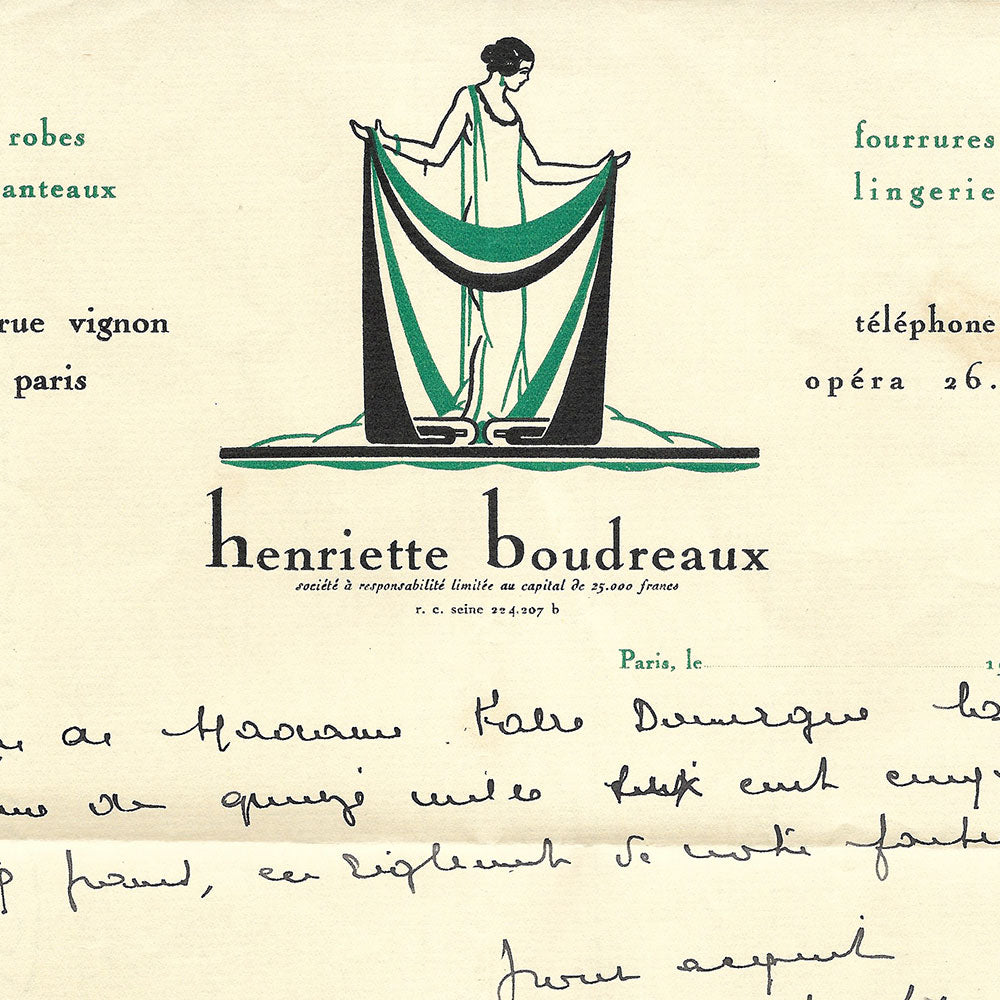 robes
anteaux
fourrures
lingerie
rue vignon
paris
téléphone
opéra 26.
henriette boudreaux
société à responsabilité limitée au capital de 25.000 francs
r. c. seine 224.207 b
Paris, le 19
de Madame Dumergue
de quinze mille cent
francs, en règlement de notre
Pour acquit